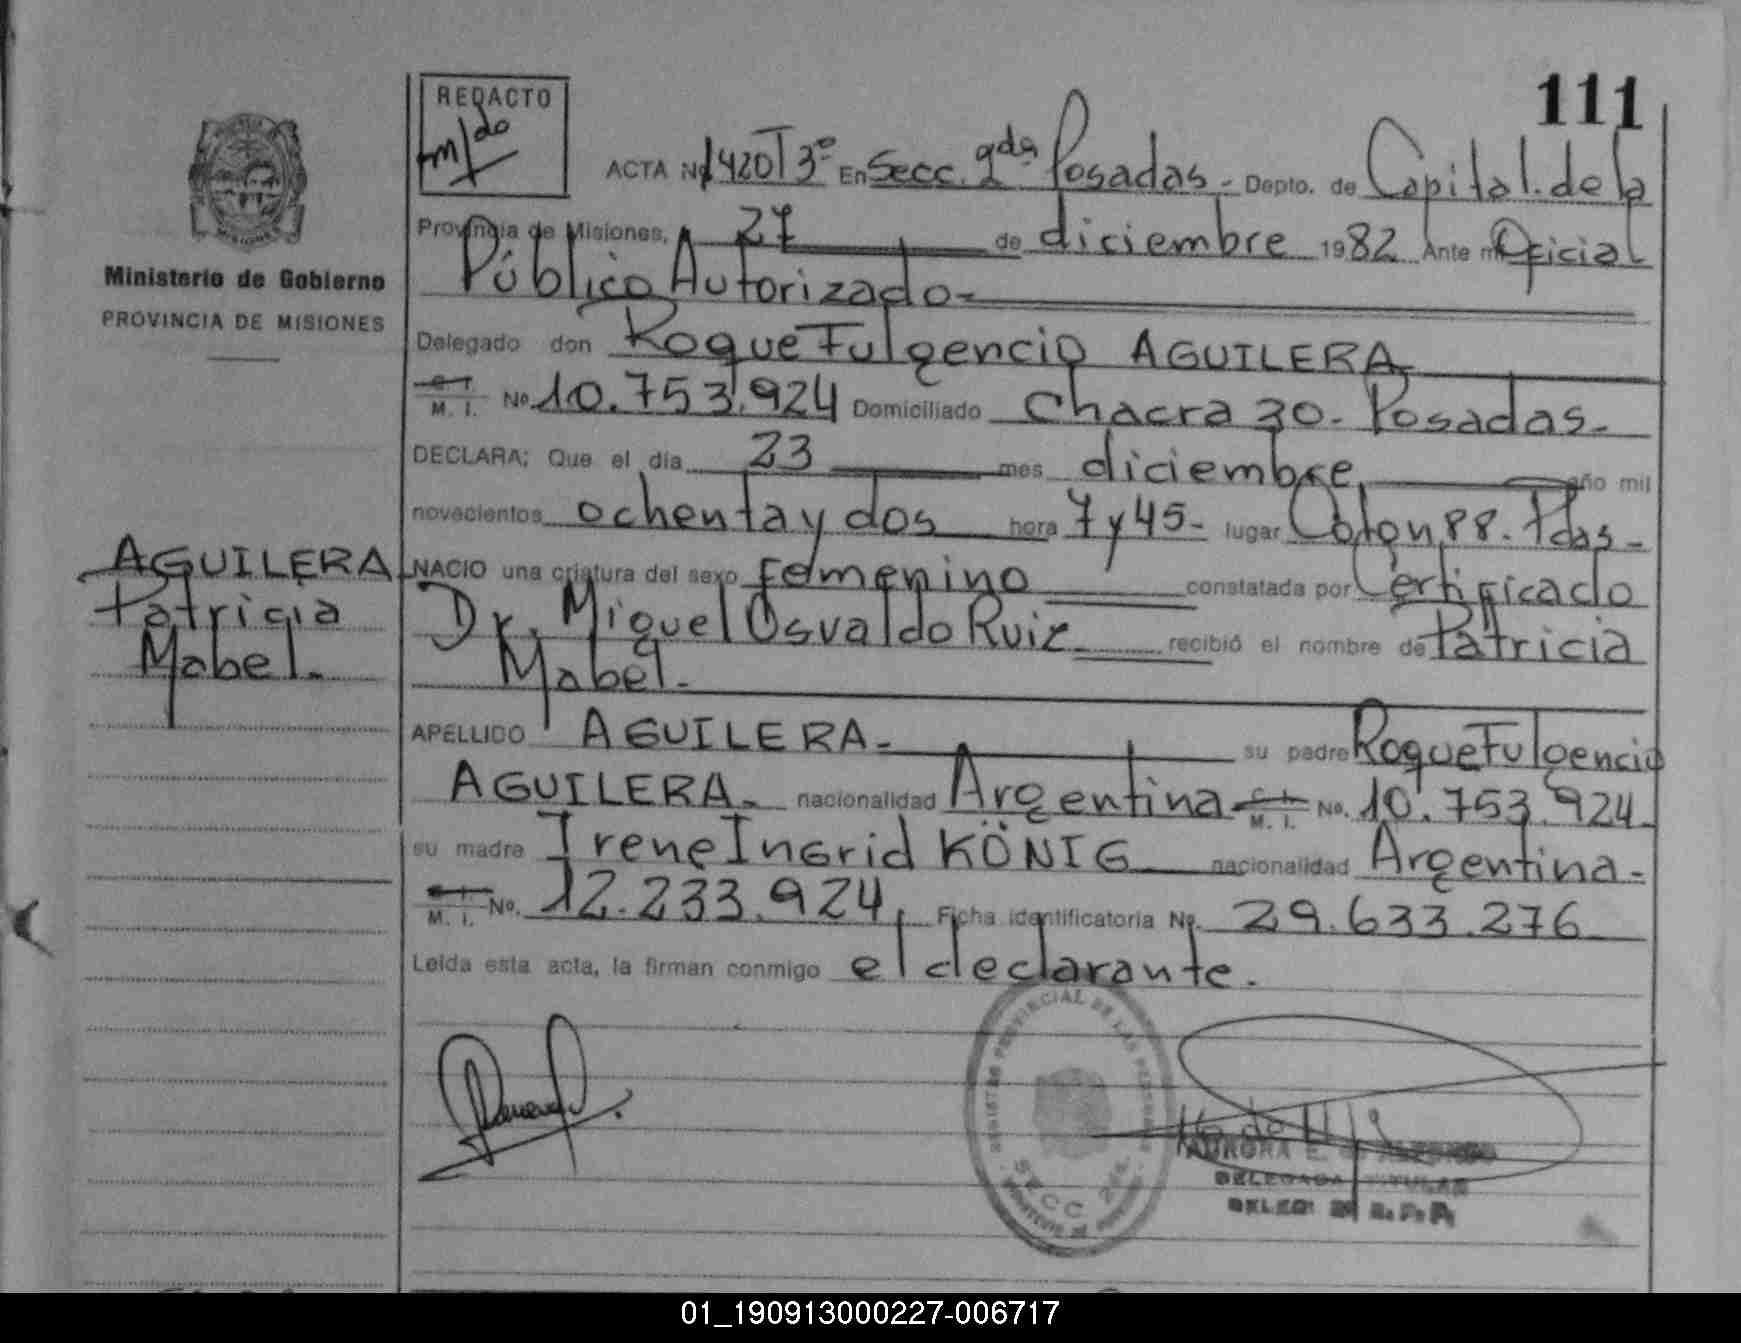 111
REDACTO
ACTA Nº 1420 T 3º En Secc. 2da Posadas - Depto. de Capital. de la
Provincia de Misiones, A 27 de diciembre 1982 Ante mi Oficial
Público Autorizado -
Ministerio de Gobierno
PROVINCIA DE MISIONES
Delegado don Roque Fulgencio AGUILERA
C. I. M. I. Nº 10.753.924 Domiciliado Chacra 30. Posadas.-
DECLARA: Que el día 23 mes diciembre año mil
novecientos ochenta y dos hora 7 y 45- lugar Colon 88. Pdas-
AGUILERA
Patricia
Mabel.
NACIO una criatura del sexo femenino constatada por Certificado
Dr. Miguel Osvaldo Ruiz recibió el nombre de Patricia
Mabel.-
APELLIDO AGUILERA- su padre Roque Fulgencio
AGUILERA- nacionalidad Argentina C. I. M. I. No. 10.753.924
su madre Irene Ingrid KÖNIG nacionalidad Argentina-
M. I. No. 12.233.924, Ficha identificatoria Nº 29.633.276
Leída esta acta, la firman conmigo el declarante.
REGISTRO PROVINCIAL DE LAS PERSONAS
SECC. 2da.
AURORA E.
DELEGADA TITULAR
01_190913000227-006717